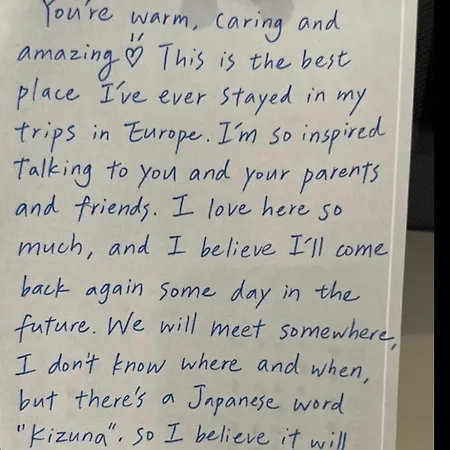 You're warm, caring and
amazing♡ This is the best
place I've ever stayed in my
trips in Europe. I'm so inspired
Talking to you and your parents
and friends. I love here so
much, and I believe I'll come
back again some day in the
future. We will meet somewhere,
I don't know where and when,
but there's a Japanese word
"Kizuna". So I believe it will